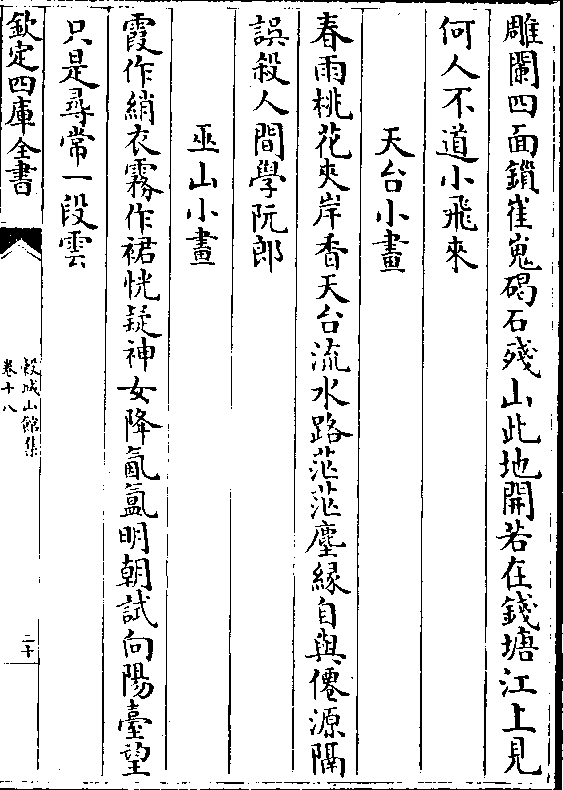 雕闌四面鎖崔嵬碣石殘山此地開若在錢塘江上見
何人不道小飛來
天台小畫
春雨桃花夾岸香天台流水路茫茫塵緣自與僊源隔
誤殺人間學阮郎
巫山小畫
霞作綃衣霧作裙恍疑神女降氤氳明朝試向陽臺望
只是尋常一段雲
欽定四庫全書
穀城山館集
卷十八
二十